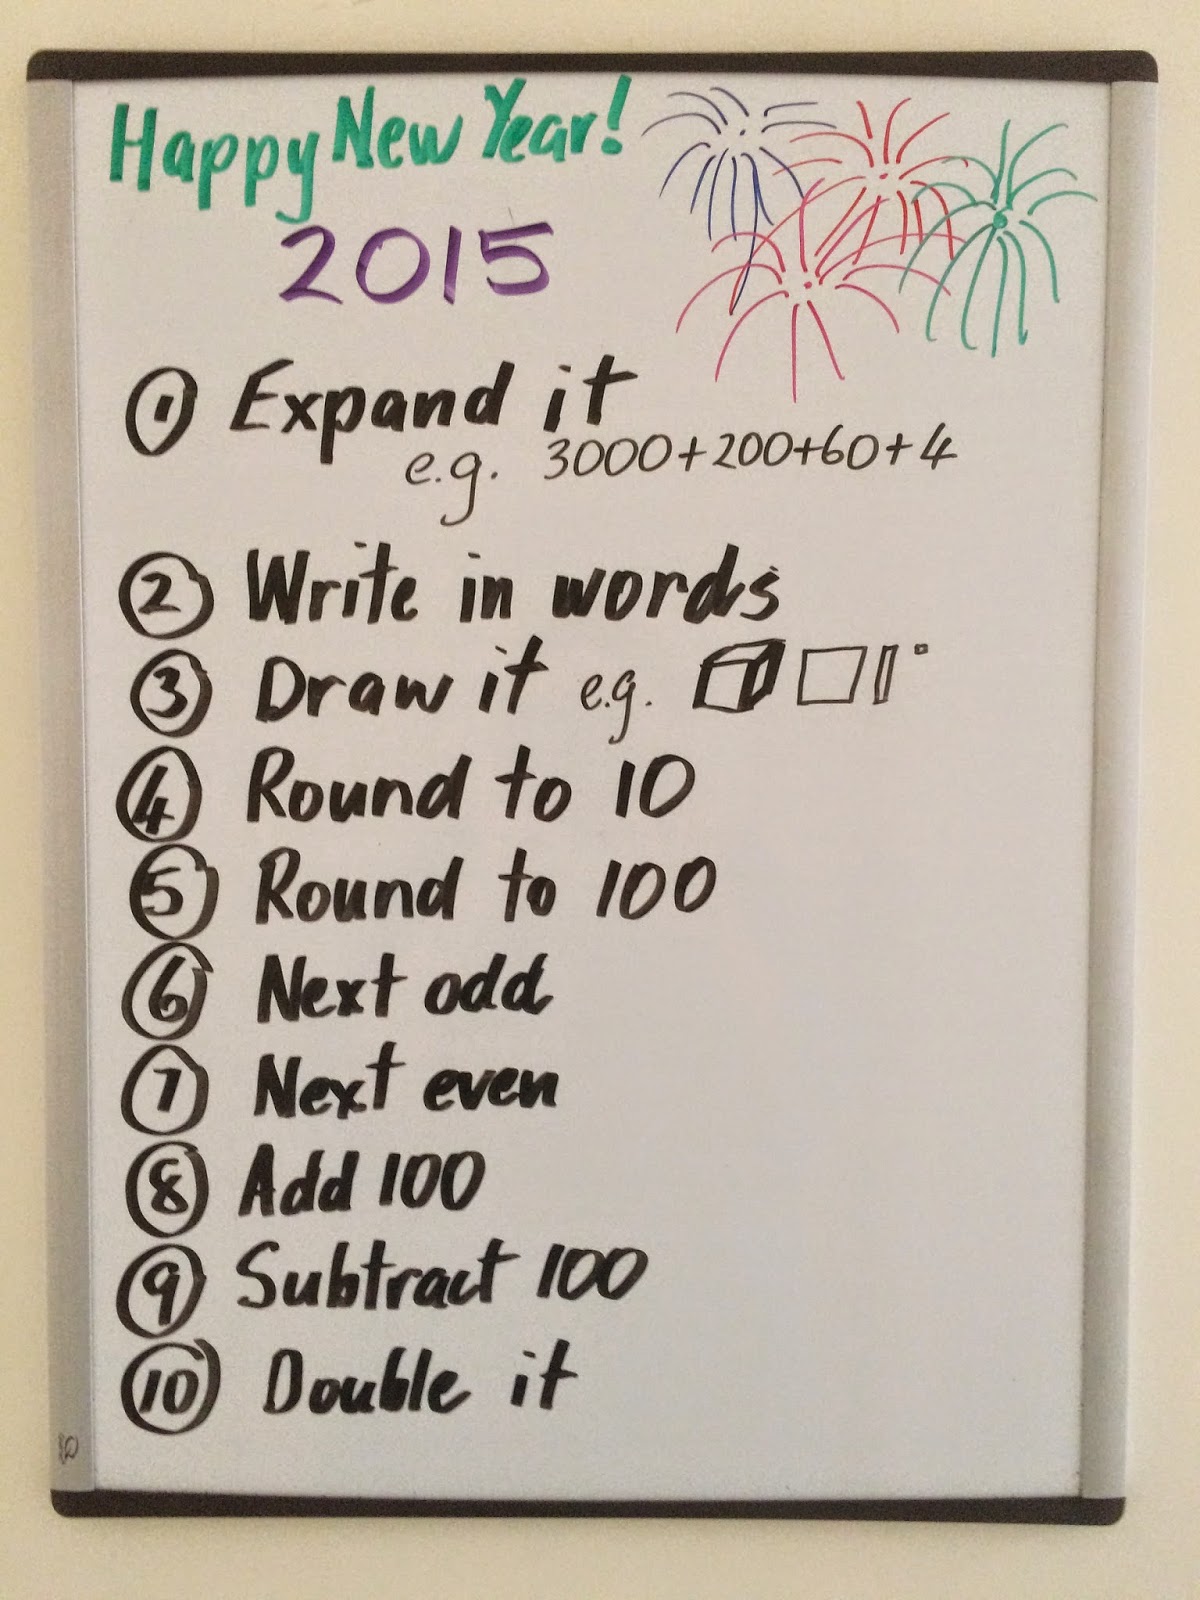 Happy New Year!
2015
1 Expand it
e.g. 3000+200+60+4
2 Write in words
3 Draw it e.g.
4 Round to 10
5 Round to 100
6 Next odd
7 Next even
8 Add 100
9 Subtract 100
10 Double it